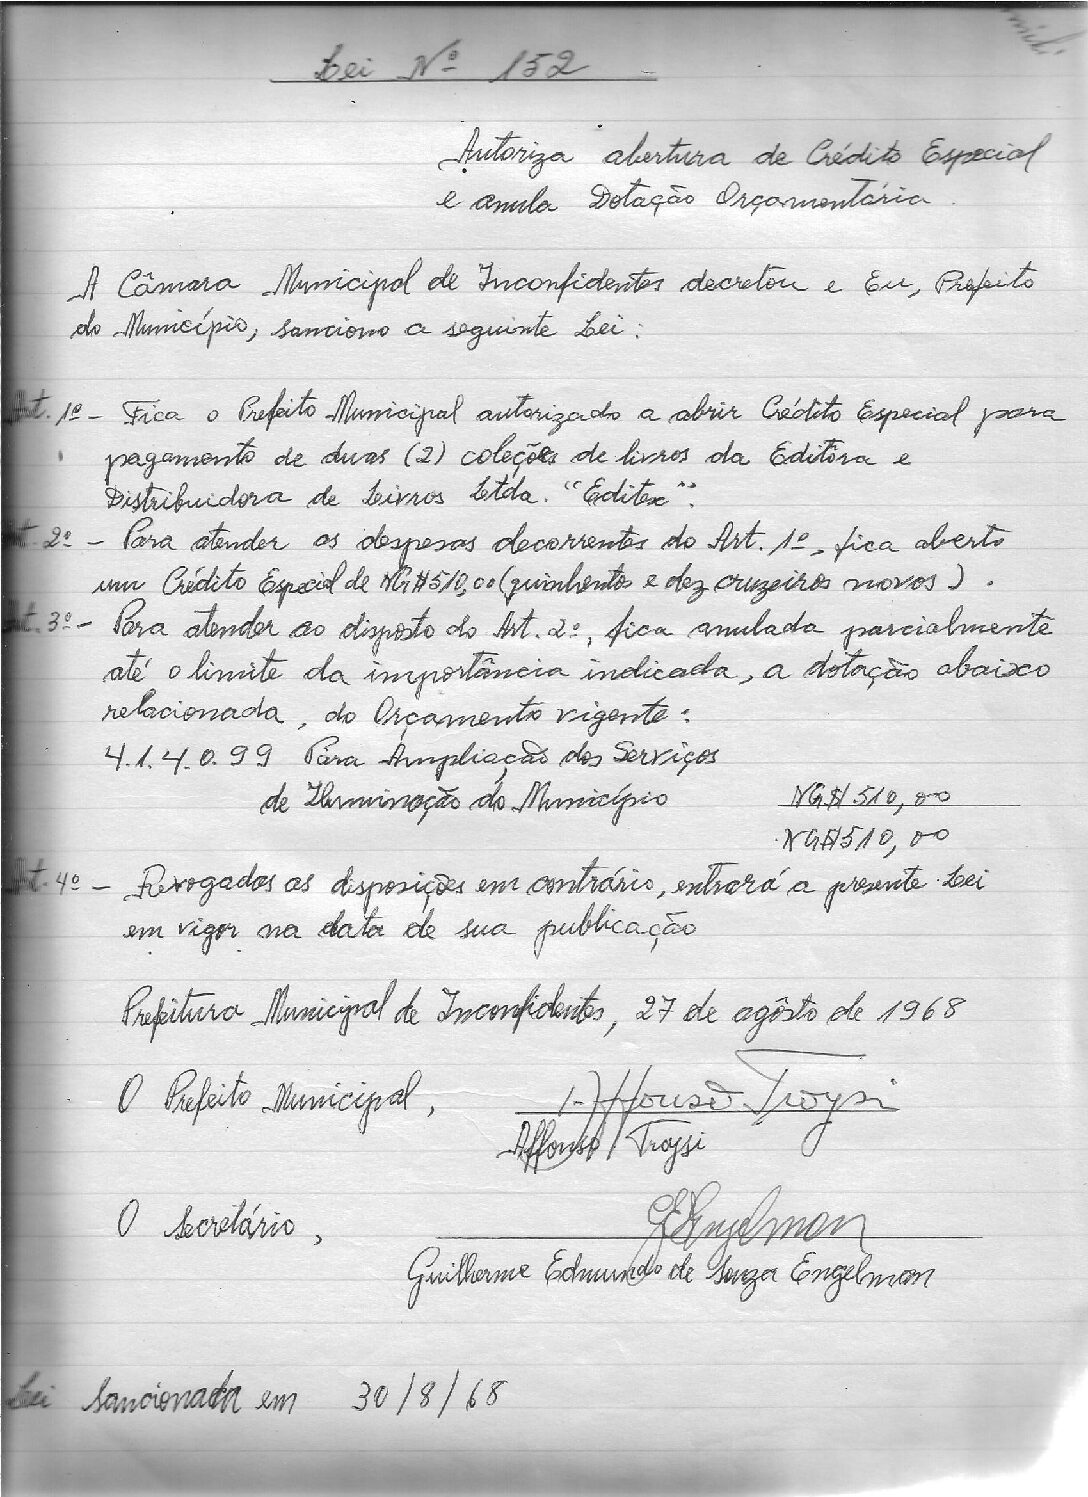 Lei Nº 152
Autoriza abertura de Crédito Especial
e anula Dotação Orçamentária.
A Câmara Municipal de Inconfidentes decretou e Eu, Prefeito
do Município, sanciono a seguinte Lei:
Art. 1º - Fica o Prefeito Municipal autorizado a abrir Crédito Especial para
pagamento de duas (2) coleções de livros da Editôra e
Distribuidora de Livros Ltda. "Editex".
Art. 2º - Para atender as despesas decorrentes do Art. 1º, fica aberto
um Crédito Especial de NCr$510,00 (quinhentos e dez cruzeiros novos).
Art. 3º - Para atender ao disposto do Art. 2º, fica anulada parcialmente
até o limite da importância indicada, a dotação abaixo
relacionada, do Orçamento vigente:
4.1.4.0.99 Para Ampliação dos Serviços
de Iluminação do Município NCr$510,00
NCr$510,00
Art. 4º - Revogadas as disposições em contrário, entrará a presente Lei
em vigor na data de sua publicação
Prefeitura Municipal de Inconfidentes, 27 de agôsto de 1968
O Prefeito Municipal, Affonso Troysi
Affonso Troysi
O Secretário, GESEngelman
Guilherme Edmundo de Souza Engelman
Lei Sancionada em 30/8/68